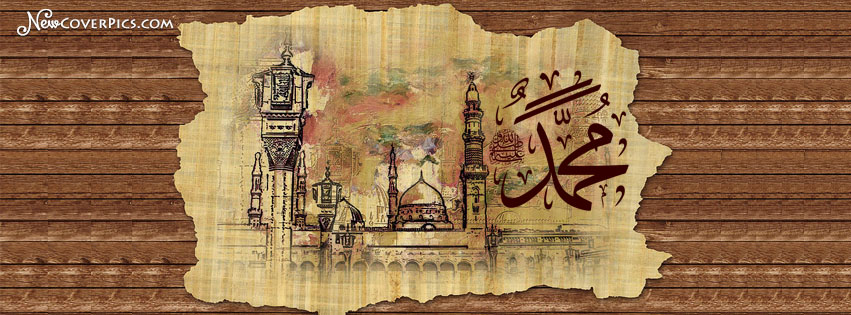 NewCoverPics.com
محمّد
ﷺ